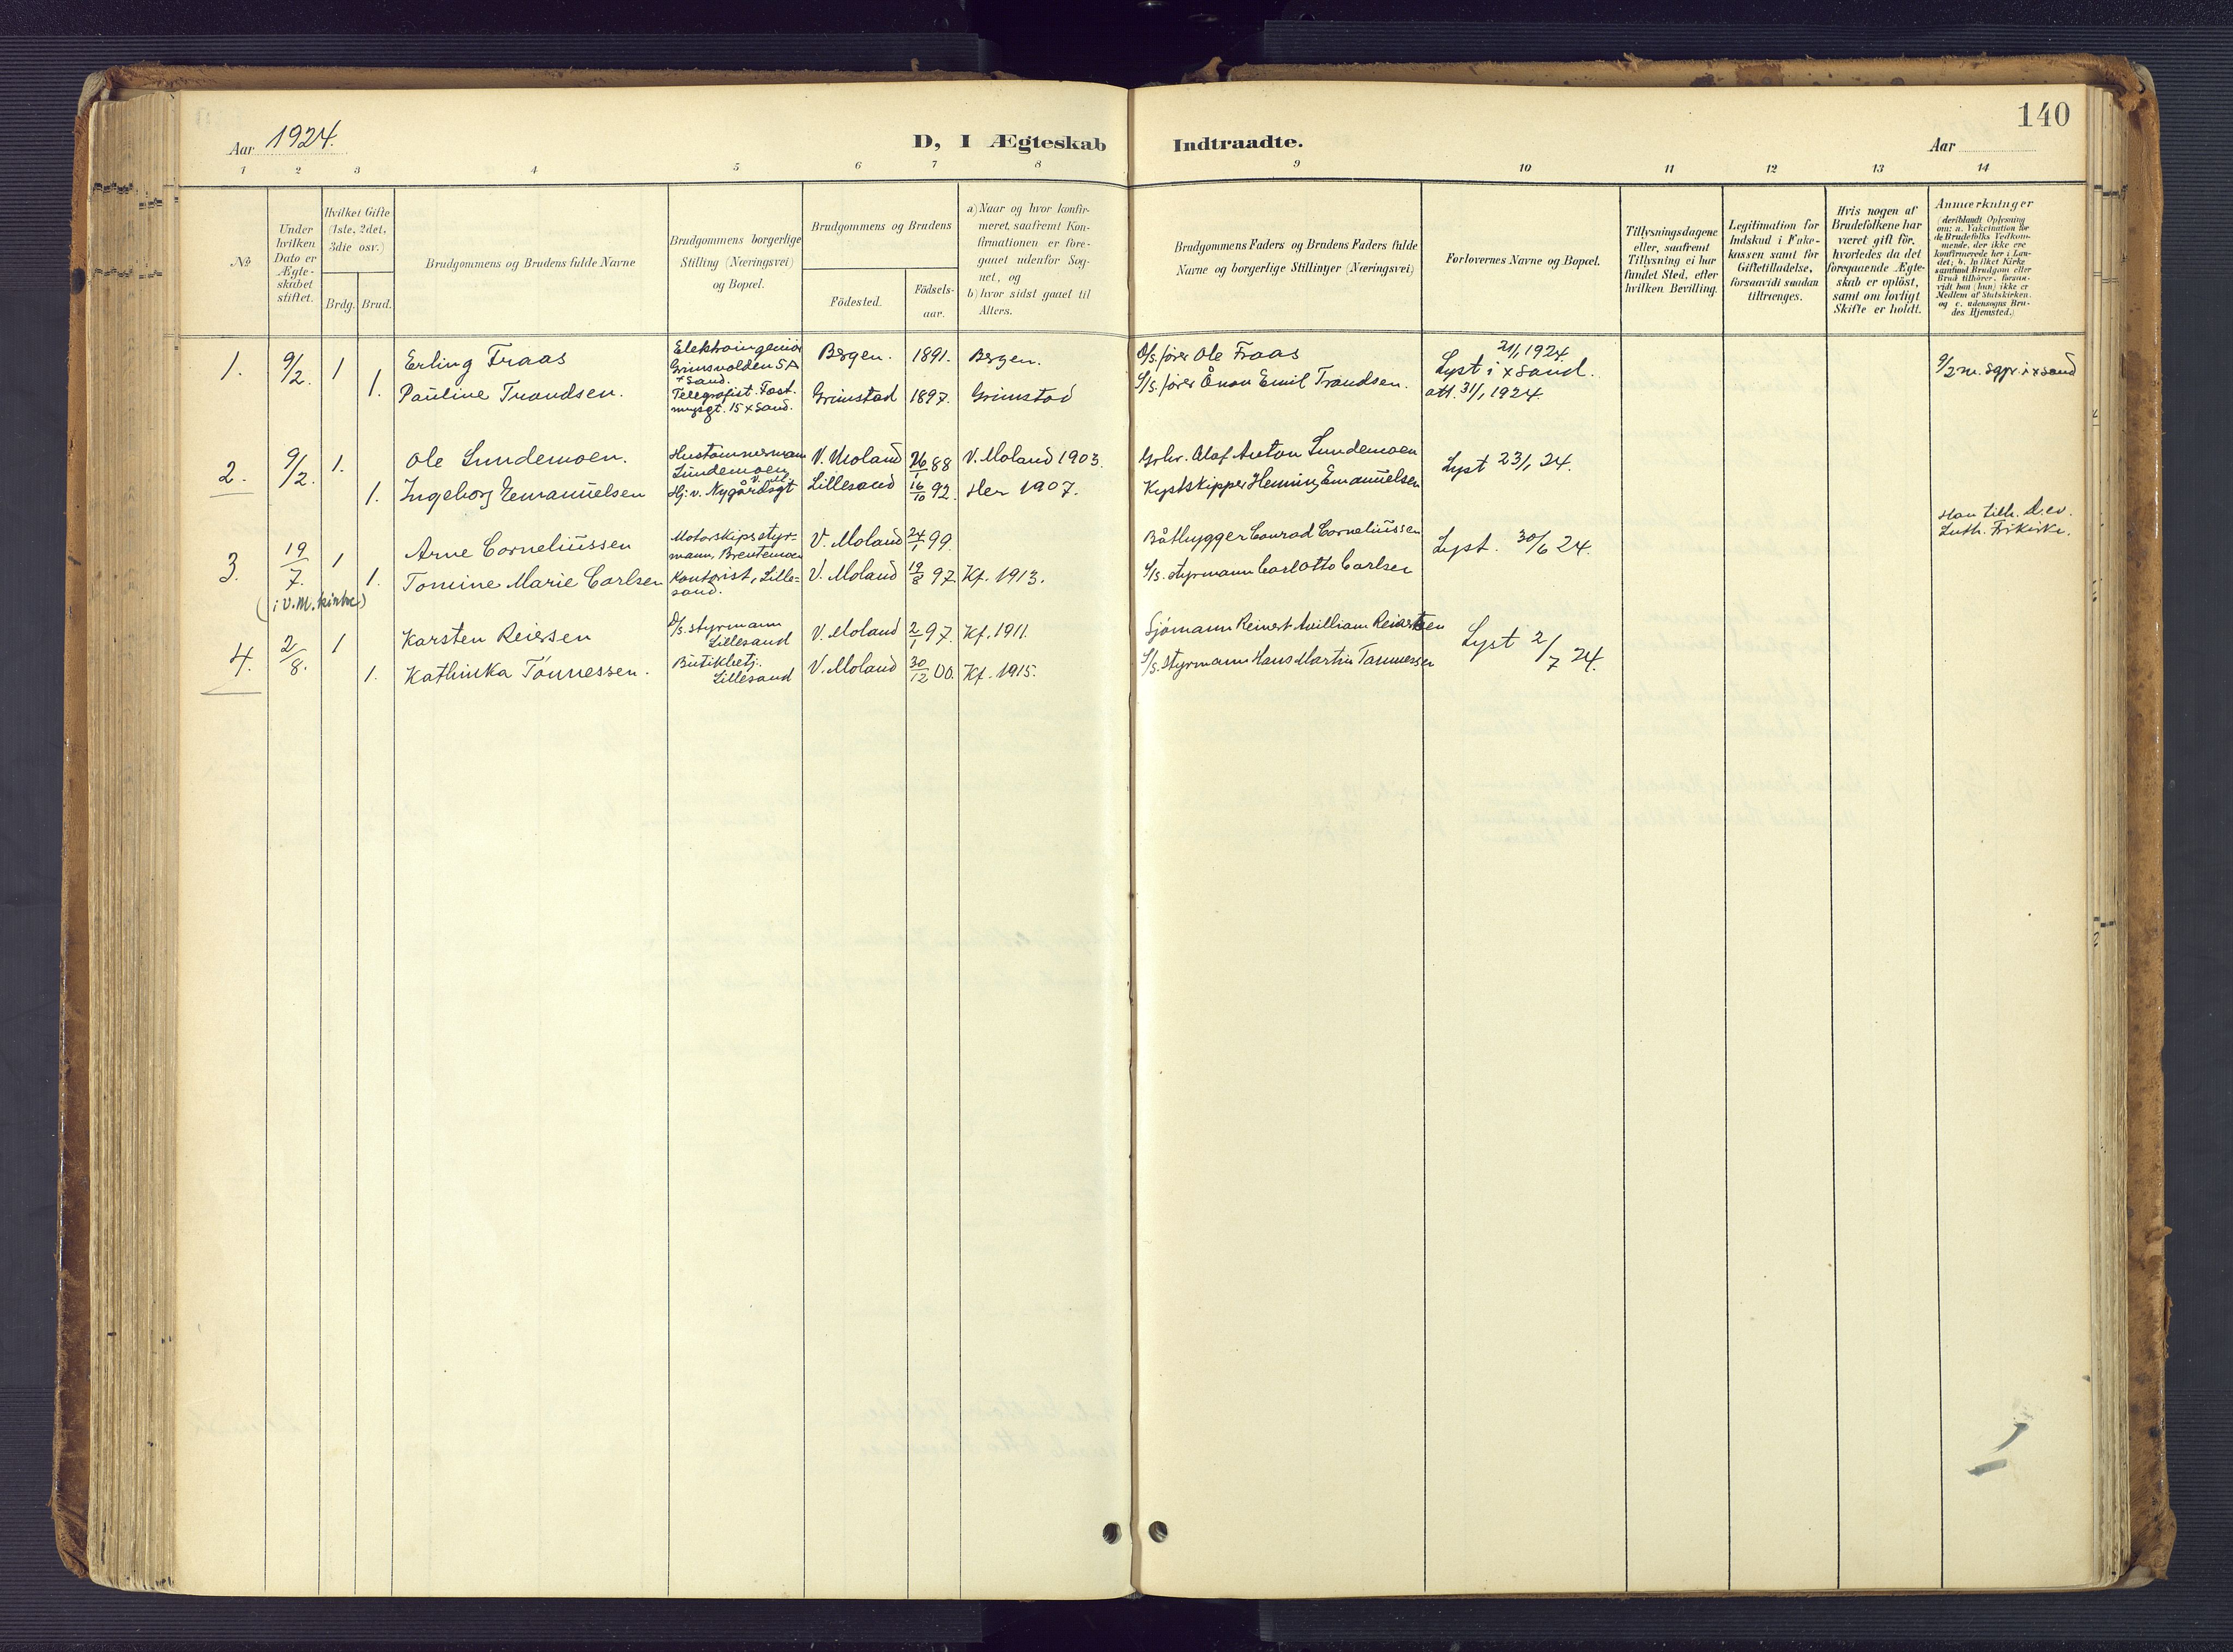 140
Aar 1924.
D, I Ægteskab Indtraadte.
Aar
1 2 3 4 5 6 7 8 9 10 11 12 13 14
No
Under
hvilken
Dato er
Ægte-
skabet
stiftet.
Hvilket Gifte
(1ste, 2det,
3die osv.)
Brdg. Brud.
Brudgommens og Brudens fulde Navne
Brudgommens borgerlige
Stilling (Næringsvei)
og Bopæl.
Brudgommens og Brudens
Födested.
Födsels-
aar.
a) Naar og hvor konfir-
meret, saafremt Kon-
firmationen er fore-
gaaet udenfor Sog-
net, og
b) hvor sidst gaaet til
Alters.
Brudgommens Faders og Brudens Faders fulde
Navne og borgerlige Stillinger (Næringsvei)
Forlovernes Navne og Bopæl.
Tillysningsdagene
eller, saafremt
Tillysning ei har
fundet Sted, efter
hvilken Bevilling.
Legitimation for
Indskud i Enke-
kassen samt for
Giftetilladelse,
forsaavidt saadan
tiltrænges.
Hvis nogen af
Brudefolkene har
været gift för,
hvorledes da det
foregaaende Ægte-
skab er oplöst,
samt om lovligt
Skifte er holdt.
Anmærkninger
(deriblandt Oplysning
om: a. Vakcination for
de Brudefolks Vedkom-
mende, der ikke ere
konfirmerede her i Lan-
det; b. hvilket Kirke
samfund Brudgom eller
Brud tilhörer, forsaa-
vidt han (hun) ikke er
Medlem af Statskirken.
og c. udensogns Bru-
des Hjemsted.)
1. 9/2. 1 Erling Fraas
Elektroingeniör
Grimsvolden 5A
xSand.
Bergen. 1891. Bergen.
D/s. förer Ole Fraas
21/1 1924.
Lyst i xSand.
att. 31/1 1924.
9/2 m. sgpr. i xsand
1. Pauline Trondsen.
Telegrafist. Fest.
mngsgt. 15 xSand.
Grimstad 1897. Grimstad
S/s. förer Ånon Emil Trondsen.
2. 9/2. 1. Ole Lundemoen.
Hustömmermann
Lundemoen
V. Moland 26/1 88 V. Moland 1903.
Grbr. Olaf Anton Lundemoen
Lyst 23/1 24.
1. Ingeborg Emanuelsen
Hj. v. Nygårdsgt
Lillesand 16/10 92. Her 1907.
Kystskipper Henning Emanuelsen
3. 19/7. 1 Arne Corneliussen
Motorskipsstyr-
mann, Brentemoen
V. Moland 24/1 99.
Båtbygger Conrad Corneliussen
Lyst. 30/6 24.
Han tilh. d. ev.
Luth. Frikirke.
(i V. M. kirke)
1. Tomine Marie Carlsen
Kontorist, Lille-
sand.
V. Moland 19/8 97. Kf. 1913.
S/s. styrmann Carl Otto Carlsen
4. 2/8. 1 Karsten Reiersen
D/s. styrmann
Lillesand
V. Moland 2/1 97. Kf. 1911.
Sjömann Reinert William Reiersen
Lyst 2/7 24.
1. Kathinka Tönnessen.
Butikbetj.
Lillesand
V. Moland 30/12 00. Kf. 1915.
S/s. styrmann Hans Martin Tönnessen